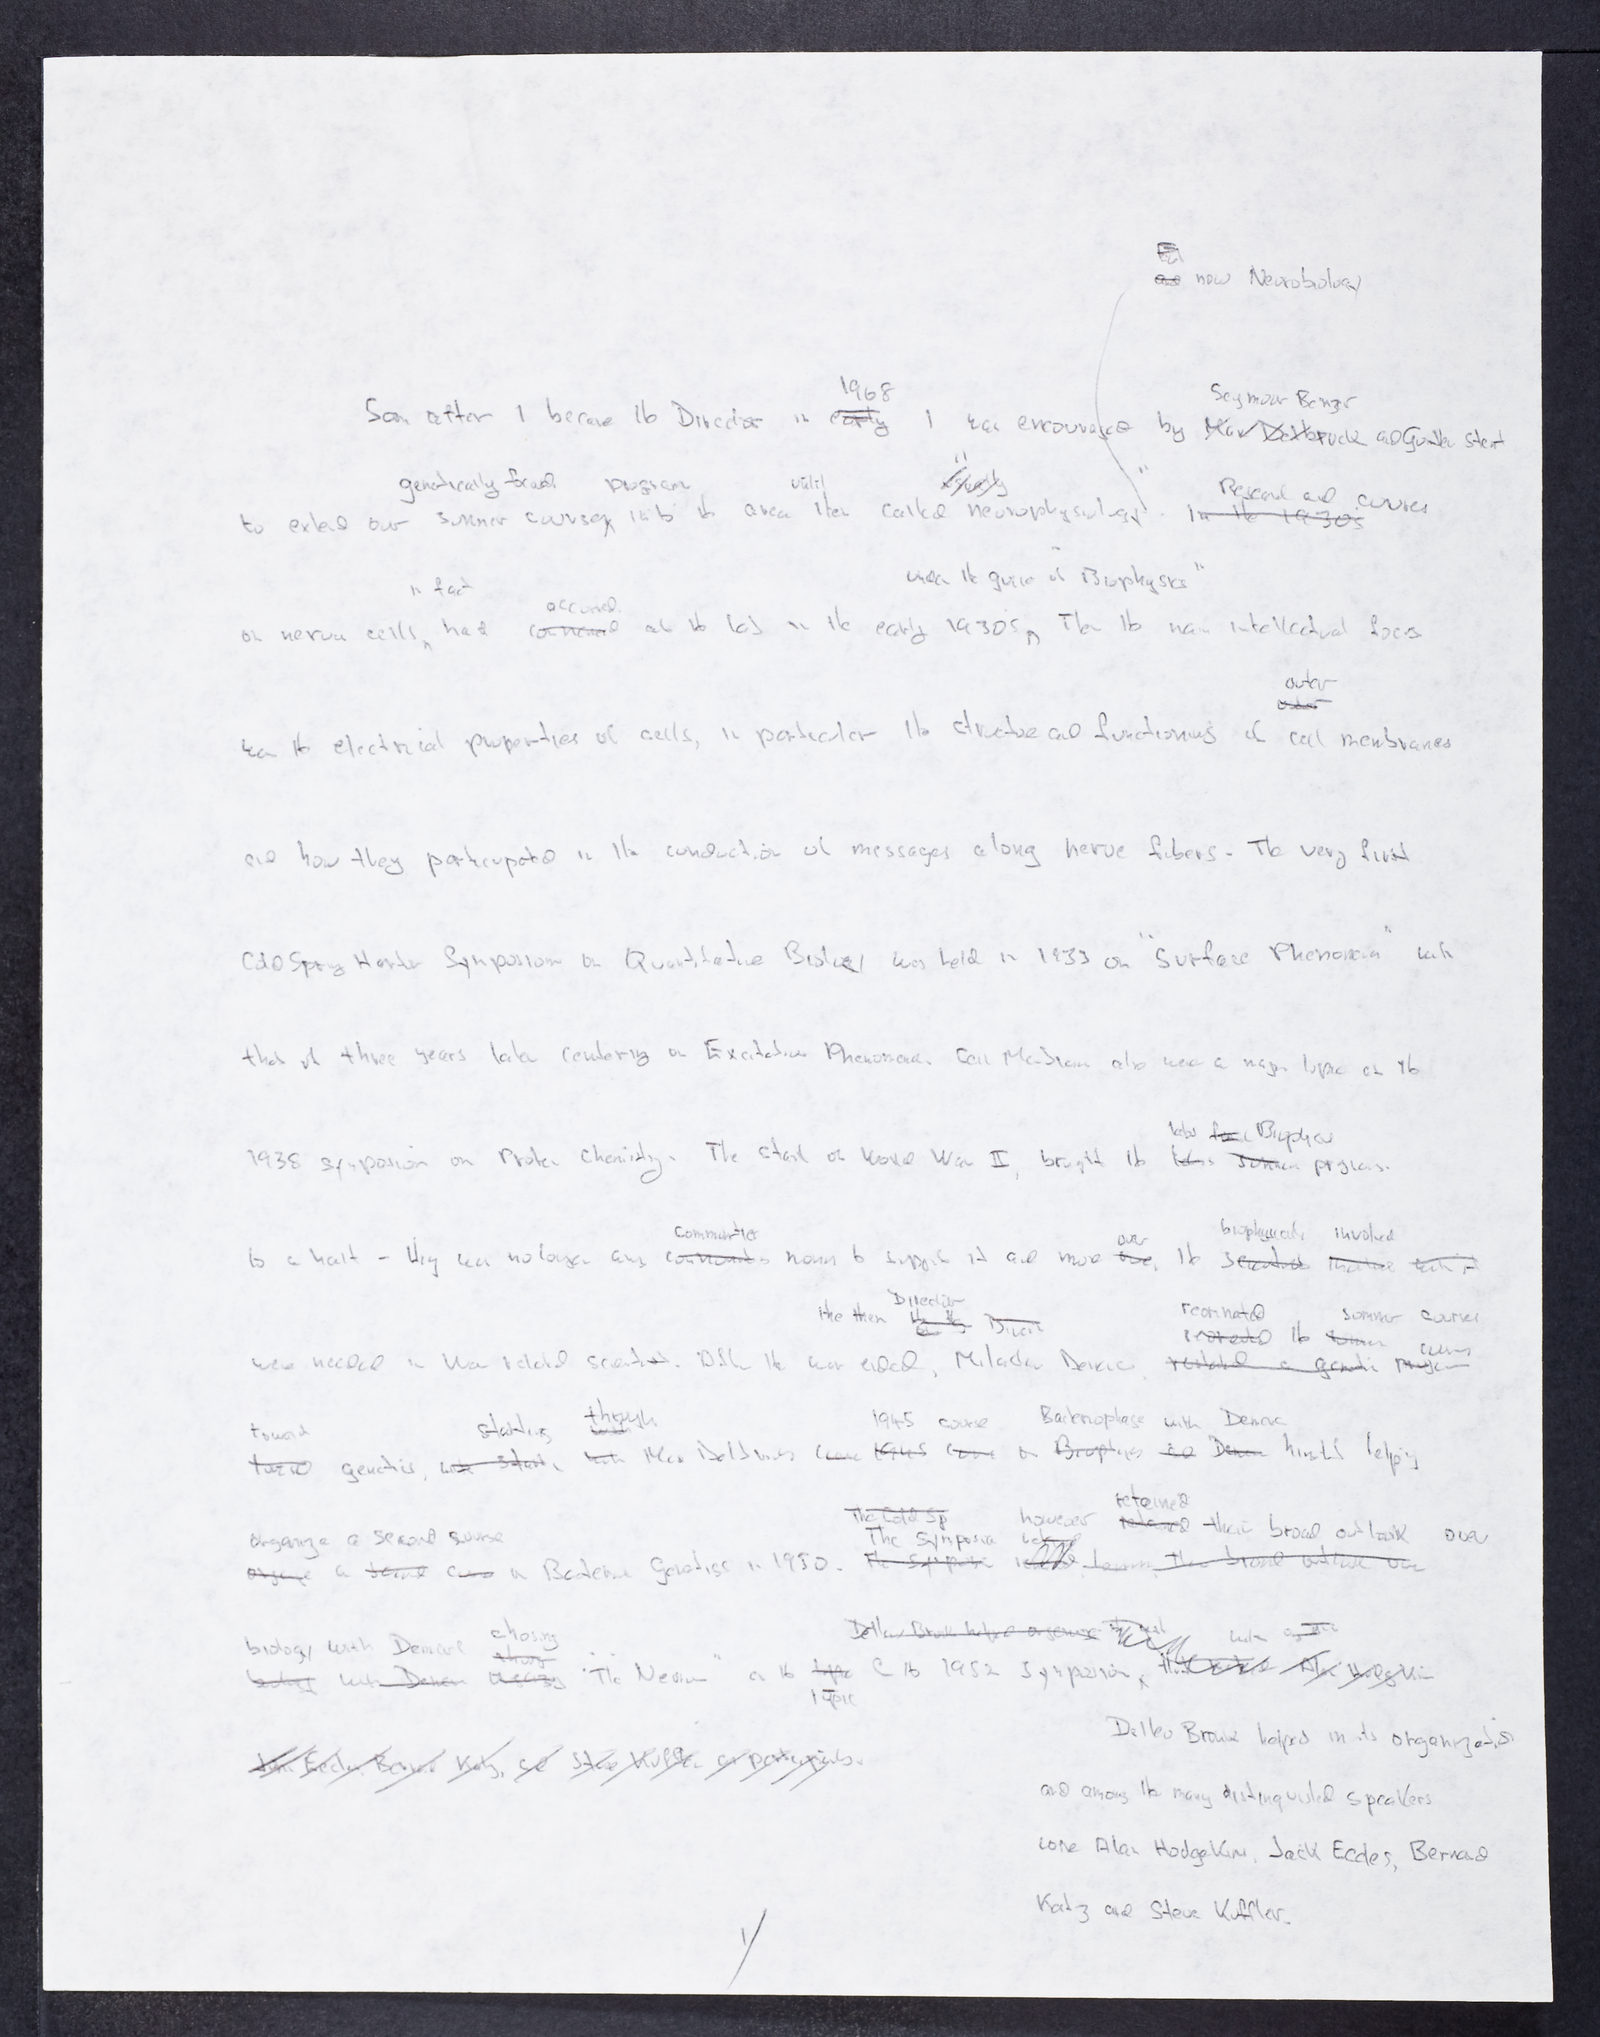 now Neurobiology
1968
Seymour Benzer
Soon after I became the Director in early I was encouraged by Max Delbruck and Gunther Stent
genetically focused program until
Research and courses
to extend our summer courses into the area then called neurophysiology". In the 1930s
in fact
occurred
under the guise of "Biophysics"
on nerve cells, had at the lab in the early 1930's. Then the main intellectual focus
outer
was the electrical properties of cells, in particular the structure and functioning of cell membranes
and how they participated in the conduction of messages along nerve fibers. The very first
Cold Spring Harbor Symposium on Quantitative Biology was held in 1933 on "Surface Phenomena" with
that of three years later centering on Excitation Phenomena. Cell Membrane also was a major topic at the
1938 symposium on Protein Chemistry. The start of World War II, brought the labs Biophysics programs
communities over biophysicists involved
to a halt - they was no longer any monies to support it and more the
the then Director
reoriented the summer courses
were needed in War related science. After the war ended, Milislav Demerec, restarted a genetic program
toward starting through 1945 course Bacteriophage with Demerec
genetics, Max Delbrucks on himself helping
organize a second course
The Cold Sp
The Symposia however retained their broad outlook over
a second course on Bacterial Genetics in 1950. The Symposia their broad outlook over
biology with Demerec chosing
Detlev Bronk helped organize
biology with Demerec "The Neuron" as the topic of the 1952 symposium, Alan Hodgkin
Detlev Bronk helped in its organization
Jack Eccles, Bernard Katz, and Steve Kuffler as participants.
and among the many distinguished speakers
were Alan Hodgekins, Jack Eccles, Bernard
Katz and Steve Kuffler.
1/